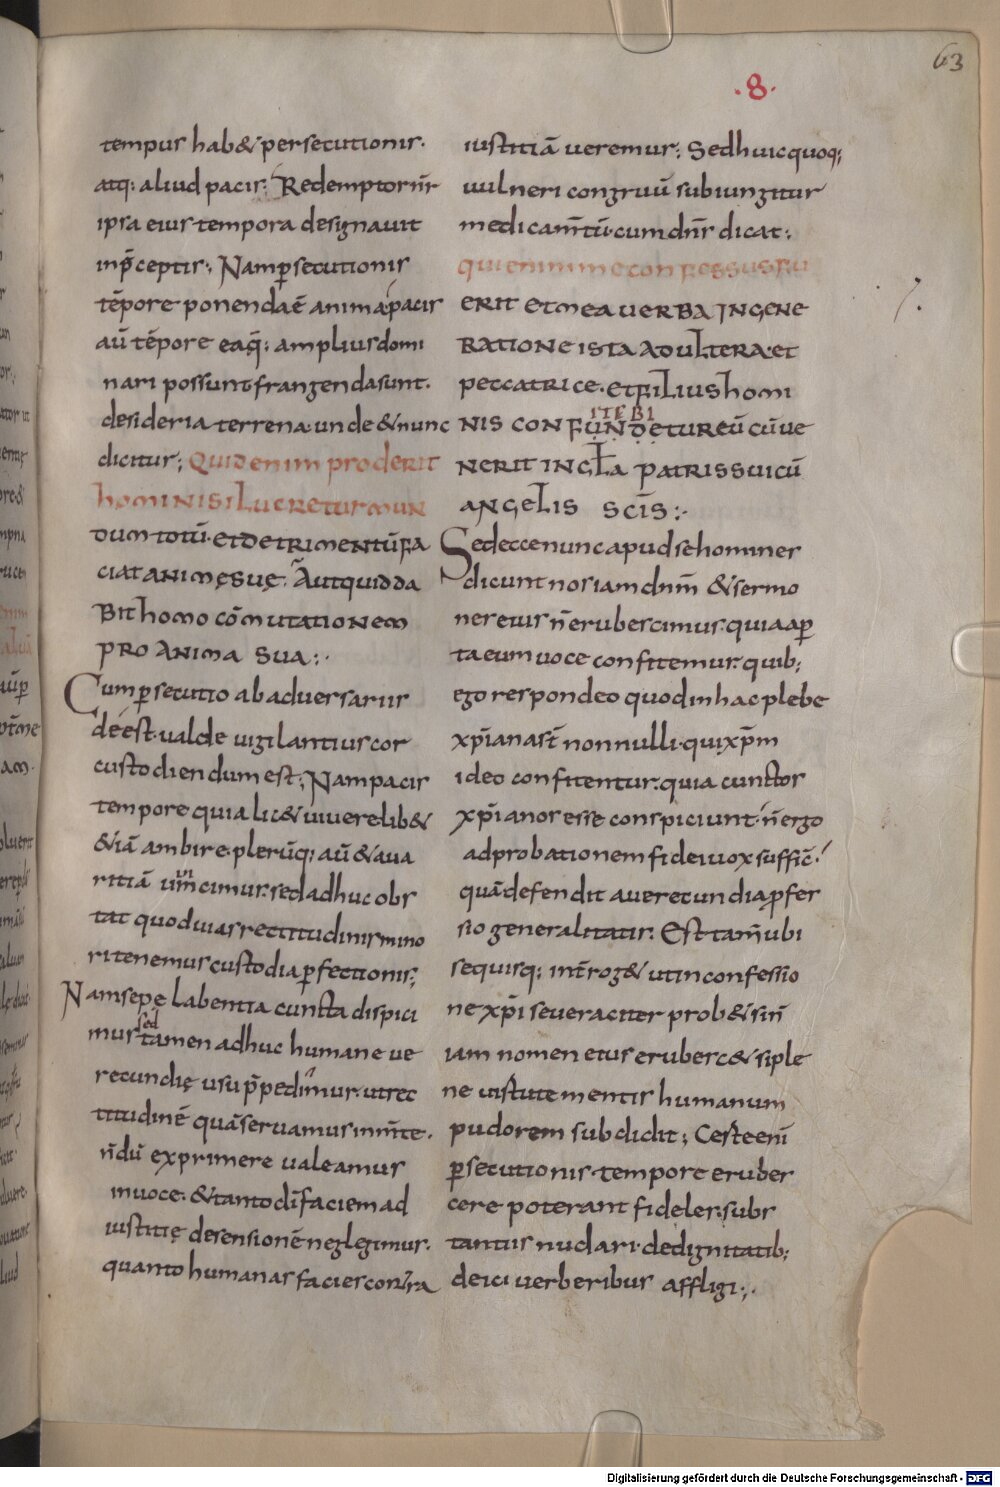 63
.8.
tempus hab& persecutionis.
atq; aliud pacis; Redemptor nr̄
ipsa eius tempora designauit
inp̄ceptis; Nam ꝑsecutionis
tēpore ponenda ē anima pacis
aū tēpore eaq̄; amplius domi
nari possunt frangenda sunt.
desideria terrena. unde & nunc
dicitur; Quid enim proderit
homini si lucretur mun
dum totū. et detrimentū fa
ciat animę suę. Aut quid da
bit homo cōmutationem
pro anima sua:.
Cum ꝑsecutio ab aduersariis
deest. ualde uigilantius cor
custodiendum est; Nam pacis
tempore quia lic& uiuere lib&
&iā ambire. plerūq; aū & aua
ritiā uincimus. sed adhuc obs
tat quod uias rectitudinis mino
ri tenemus custodia ꝑfectionis;
Nam sepę labentia cuncta dispici
mus sed tamen adhuc humane ue
recundię usu p̄pedimur. ut rec
titudinē quā seruamus in m̄te.
n̄dū exprimere ualeamus
in uoce. & tanto dī faciem ad
iustitię desensionē neglegimus.
quanto humanas facies contra
iustitiā ueremur; Sed huic quoq;
uulneri congruū subiungitur
medicam̄tū. cum dn̄s dicat;
qui enim me confessus fu
erit et mea uerba in gene
ratione ista adultera et
peccatrice. et filius homi
ITEBI
nis confundetur eū cū ue
nerit in gl̄a patris sui cū
angelis sc̄is:.
Sed ecce nunc apud se homines
dicunt nos iam dn̄m & sermo
nes eius n̄ erubescimus. quia aꝑ
ta eum uoce confitemur. quib;
ego respondeo quod in hac plebe
xp̄iana st̄ nonnulli. qui xp̄m
ideo confitentur. quia cunctos
xp̄ianos esse conspiciunt. n̄ ergo
ad probationem fidei uox suffic̄.
quā defendit a uerecundia ꝓfes
sio generalitatis. Est tam̄ ubi
se quisq; int̄rog& ut in confessio
ne xp̄i se ueraciter prob& si n̄
iam nomen eius erubesc& si ple
ne uirtute mentis humanum
pudorem subdidit; Certe enī
ꝑsecutionis tempore erubes
cere poterant fideles. subs
tantiis nudari. de dignitatib;
deici uerberibus affligi;.
Digitalisierung gefördert durch die Deutsche Forschungsgemeinschaft - DFG